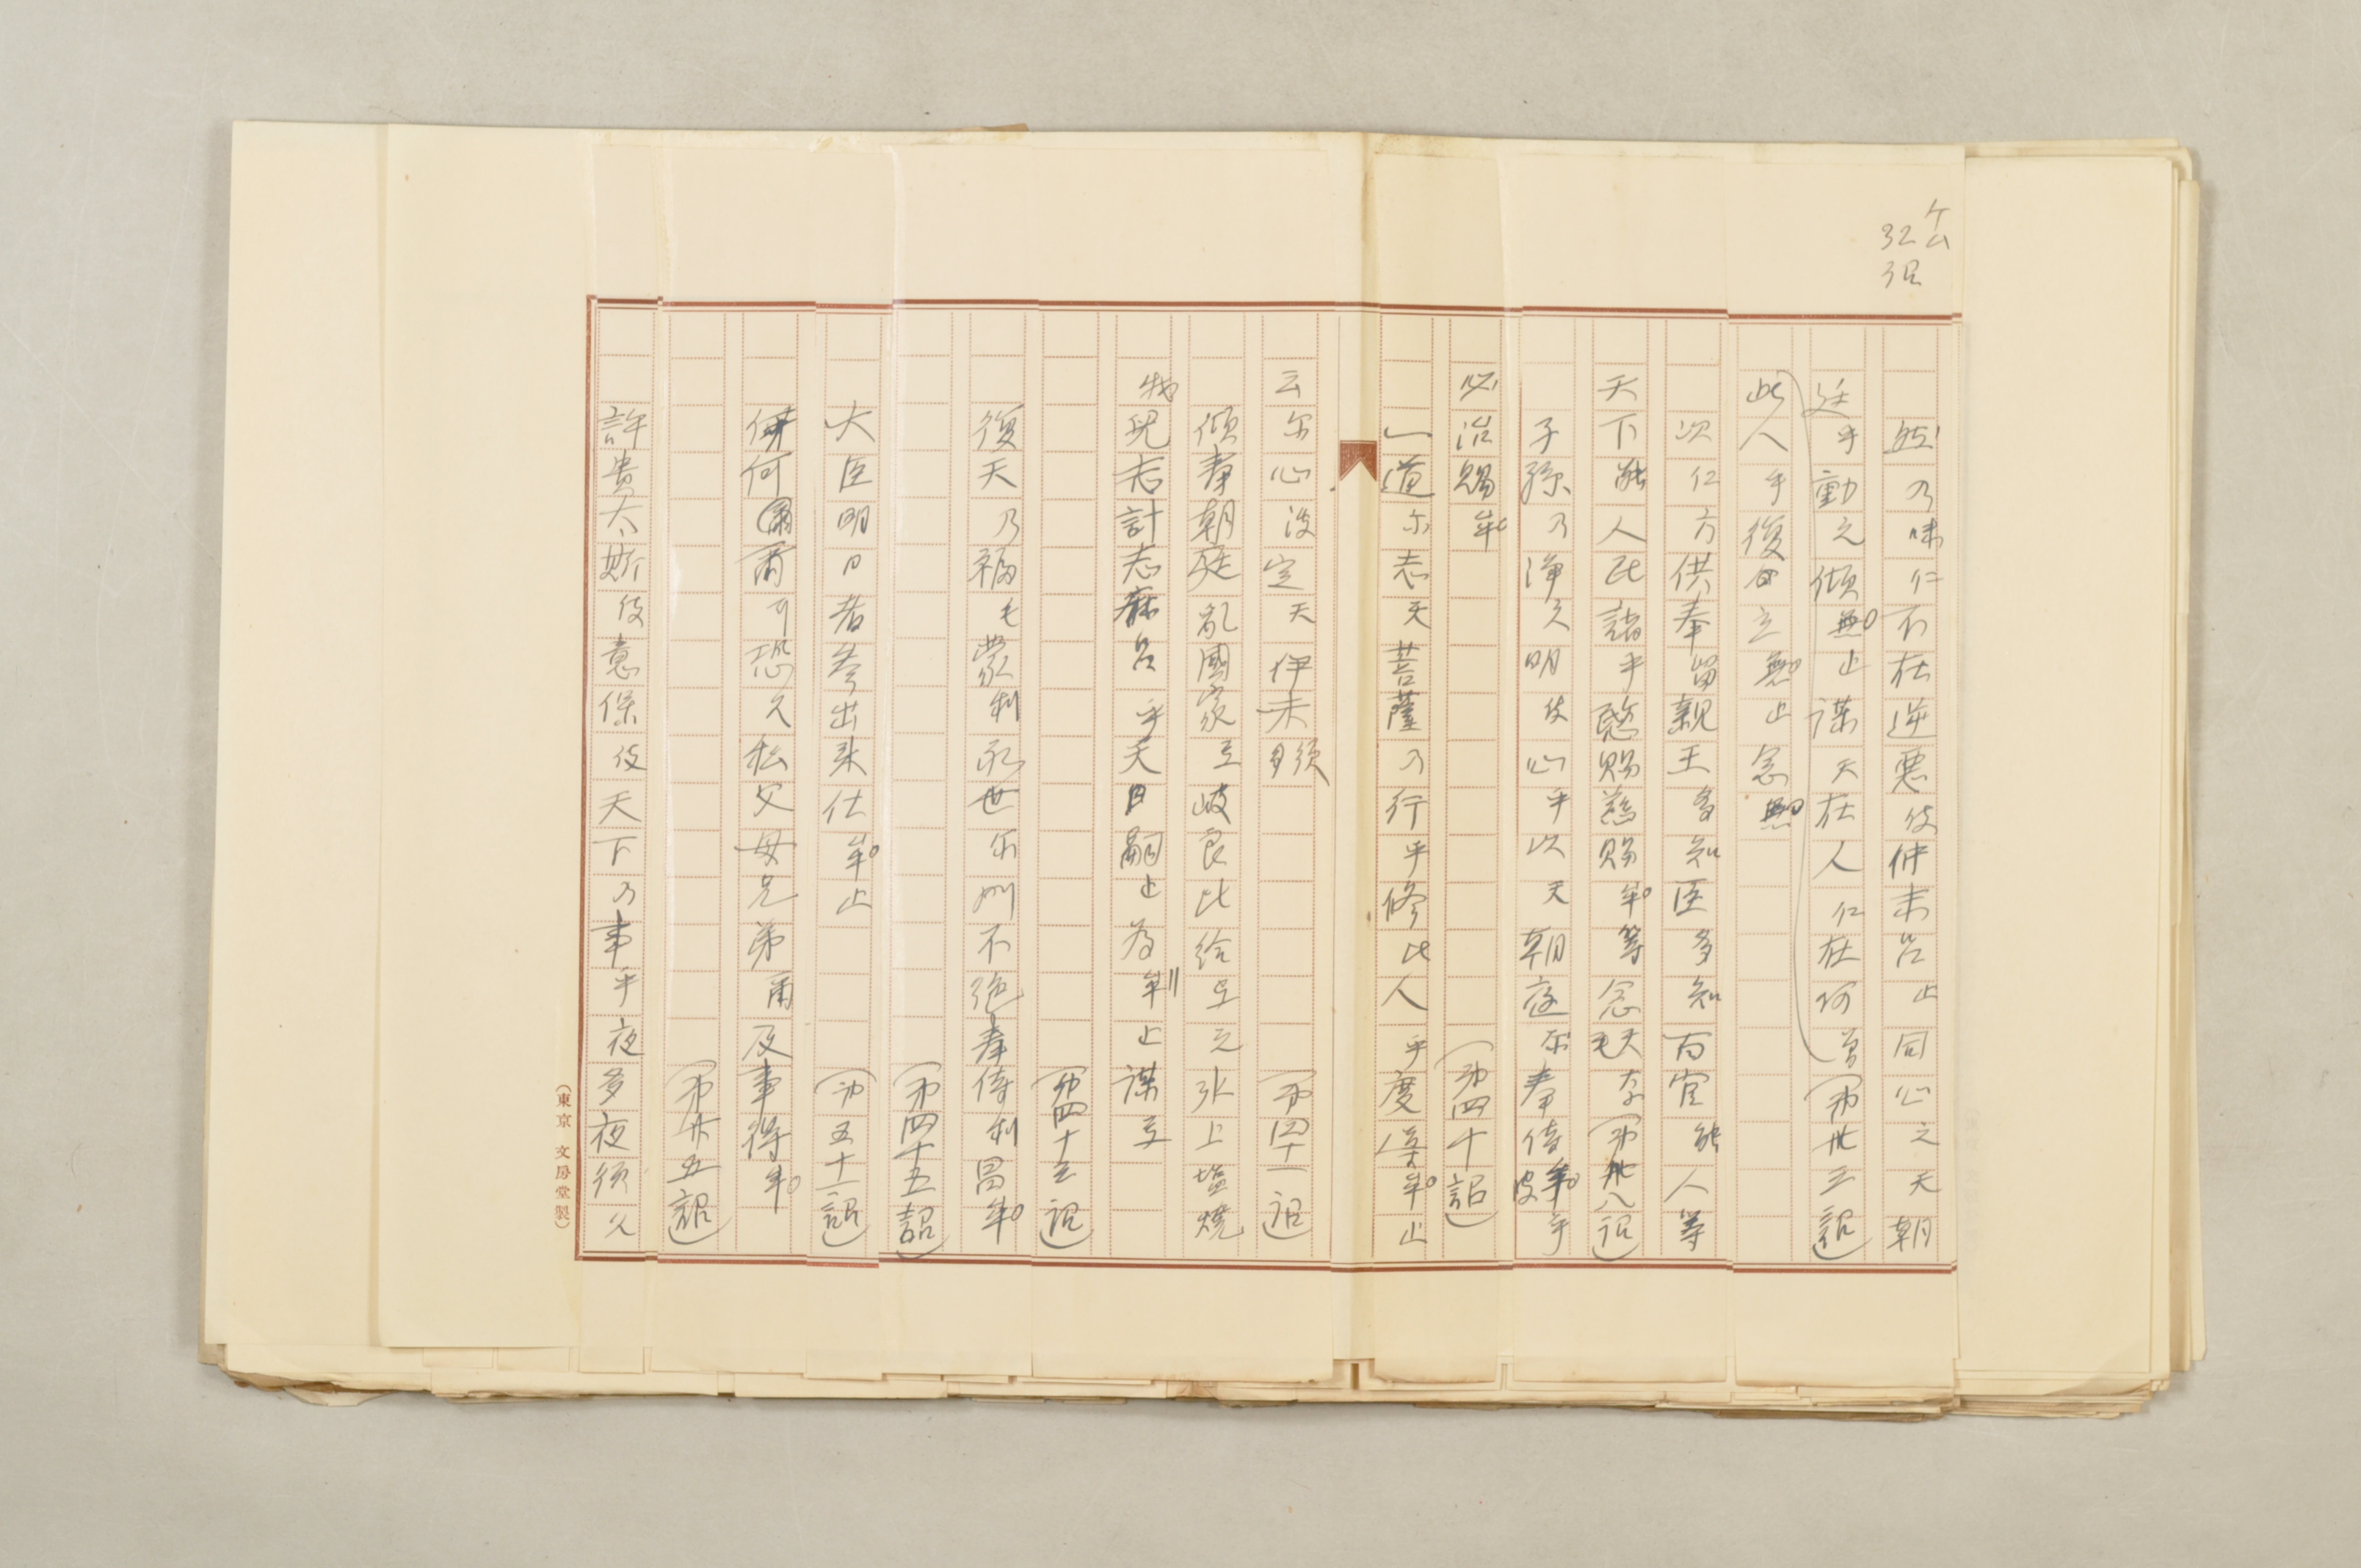 ケム
32
詔
然乃味仁不在逆悪伎仲末呂止同心之天朝
廷乎動之傾無止謀天在人仁在何曽(第卅三詔)
此人乎復日立無止念無
次仁方供奉留親王多知臣多知百官能人等
天下能人民諸乎愍賜慈賜牟等念天奈毛(第卅八詔)
子孫乃浄久明伎心乎以天朝庭尓奉侍牟乎波
必治賜牟(第四十詔)
一道尓志天菩薩乃行乎修比人乎度導牟止
云尓心波定天伊末須多(第四十一詔)
傾奉朝庭乱国家立岐良比給之氷上塩焼
児志計志麻呂乎天日嗣止為牟止謀立
(第四十三詔)
復天乃福毛蒙利永世尓門不絶奉侍利昌牟
(第四十五詔)
大臣明日者参出来仕牟止(第五十一詔)
併何爾可恐久私父母兄弟爾及事得牟
(第廿五詔)
許貴太斯伎意保伎天下乃事乎夜多夜須久
(東京 文房堂製)